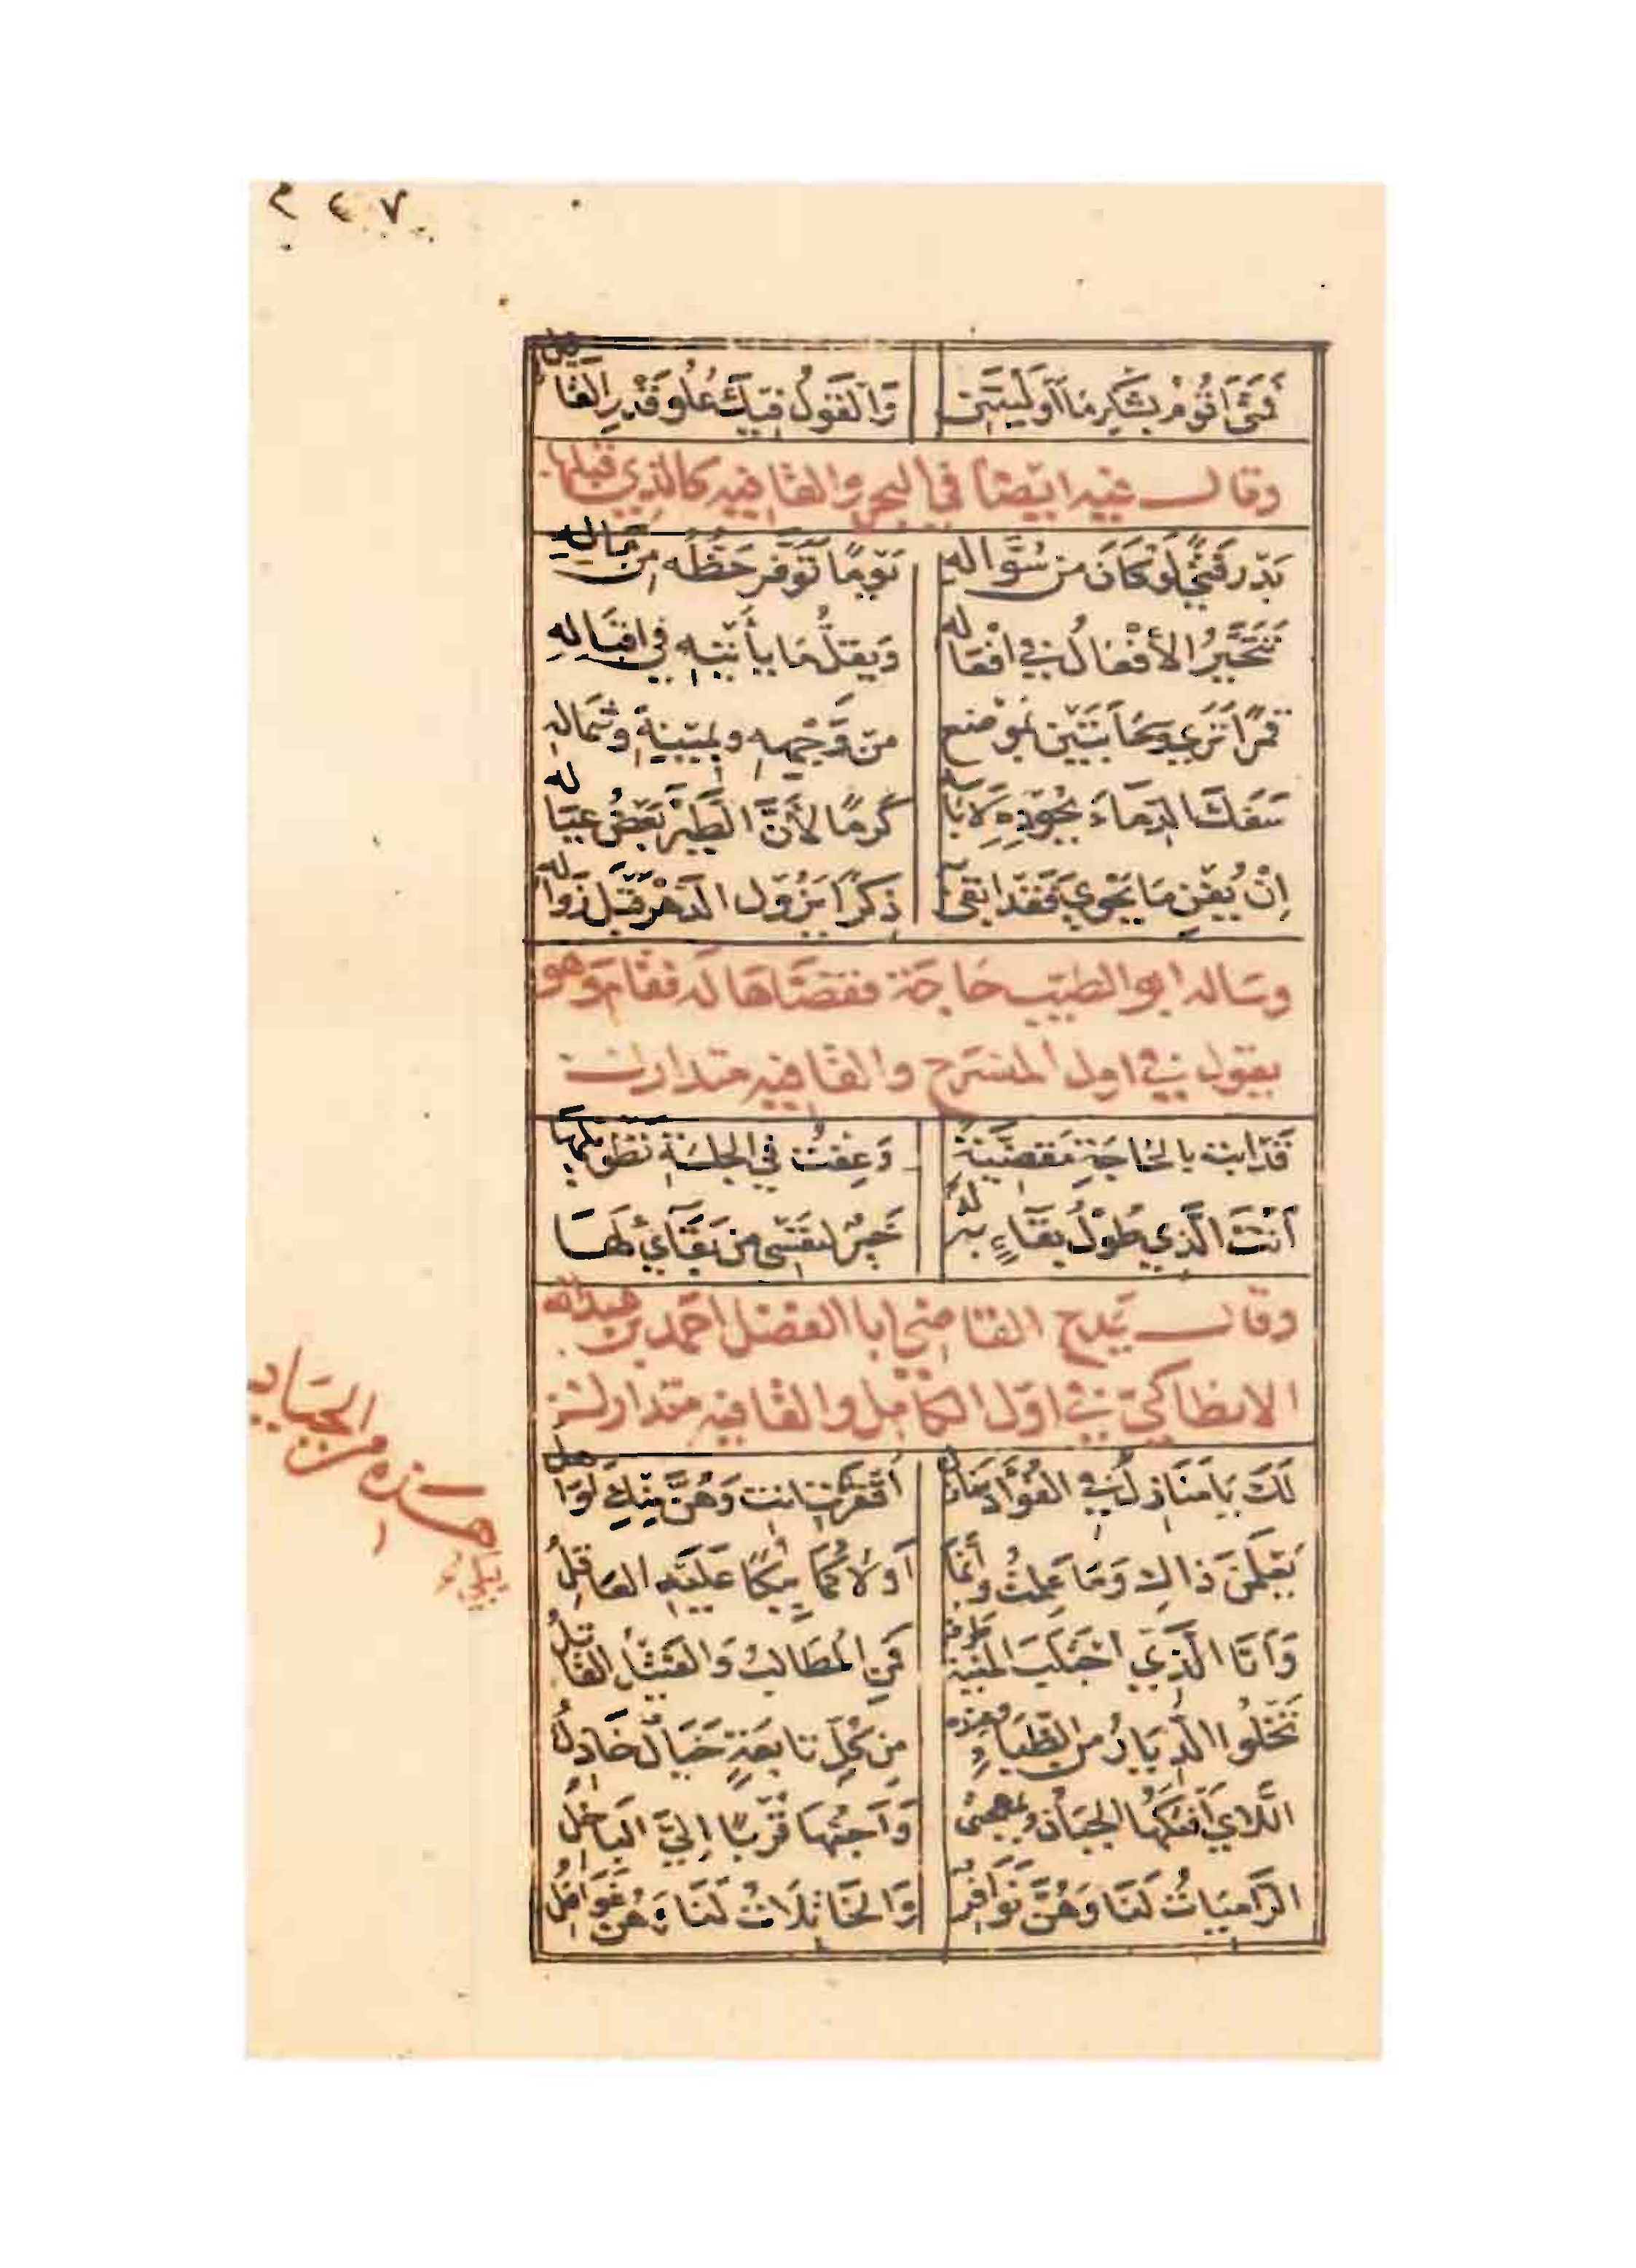 ٢٤٧
فَمَتَى أَقُومُ بِشُكْرِ مَا أَوْلَيْتَنِي وَالْقَوْلُ فِيكَ عُلُوُّ قَدْرِ الْقَائِلِ
وقال فيه ايضا في البحر والقافيه كالذي قبلها
بَدْرٌ فَتًى لَوْ كَانَ مِنْ سُؤَّالِهِ يَوْمًا تَوَفَّرَ حَظُّهُ مِنْ مَالِهِ
تَتَحَيَّرُ الأَفْعَالُ فِي افْعَالِهِ وَيَقِلُّ مَا يَأْتِيهِ فِي اقْبَالِهِ
قَمَرًا تَرَى وَسَحَابَتَيْنِ بِمَوْضِعٍ مِنْ وَجْهِهِ وَيَمِينِهِ وَشِمَالِهِ
سَفَكَ الدِّمَاءَ بِجُودِهِ لَا بَأْسِهِ كَرَمًا لأَنَّ الطَّيْرَ بَعْضُ عِيَالِهِ
إِنْ يُفْنِ مَا يَحْوِي فَقَدْ ابْقَى بِهِ ذِكْرًا يَزُولُ الدَّهْرُ قَبْلَ زَوَالِهِ
وساله ابو الطيب حاجة فقضاها له فقام وهو
يقول في اول المنسرح والقافيه متدارك
قَدْ ابْتُ بِالْحَاجَةِ مَقْضِيَّةً وَعِفْتُ فِي الْجَلْسَةِ تَطْوِيلَهَا
أَنْتَ الَّذِي طُولُ بَقَاءٍ لَهُ خَيْرٌ لِنَفْسِي مِنْ بَقَائِي لَهَا
وقال يمدح القاضي ابا الفضل احمد بن عبدالله
الانطاكي في اول الكامل والقافيه متدارك
لَكَ يَا مَنَازِلُ فِي الْفُؤَادِ مَنَازِلُ أَقْفَرْتِ انْتِ وَهُنَّ مِنْكِ أَوَاهِلُ
يَعْلَمْنَ ذَاكِ وَمَا عَلِمْتِ وَإِنَّمَا أَوْلَاكُمَا بِبُكًا عَلَيْهِ الْعَاقِلُ
وَأَنَا الَّذِي اجْتَلَبَ الْمَنِيَّةَ طَرْفُهُ فَمَنِ الْمُطَالَبُ وَالْقَتِيلُ الْقَاتِلُ
تَخْلُوا الدِّيَارُ مِنَ الظِّبَاءِ وَعِنْدَهُ مِنْ كُلِّ تَابِعَةٍ خَيَالٌ خَاذِلُ
اللَّاءِ أَفْتَكُهَا الْجَبَانُ بِمُهْجَتِي وَأَحَبُّهَا قُرْبًا إِلَيَّ الْبَاخِلُ
الرَّامِيَاتُ لَنَا وَهُنَّ نَوَافِرُ وَالْخَاتِلَاتُ لَنَا وَهُنَّ غَوَافِلُ